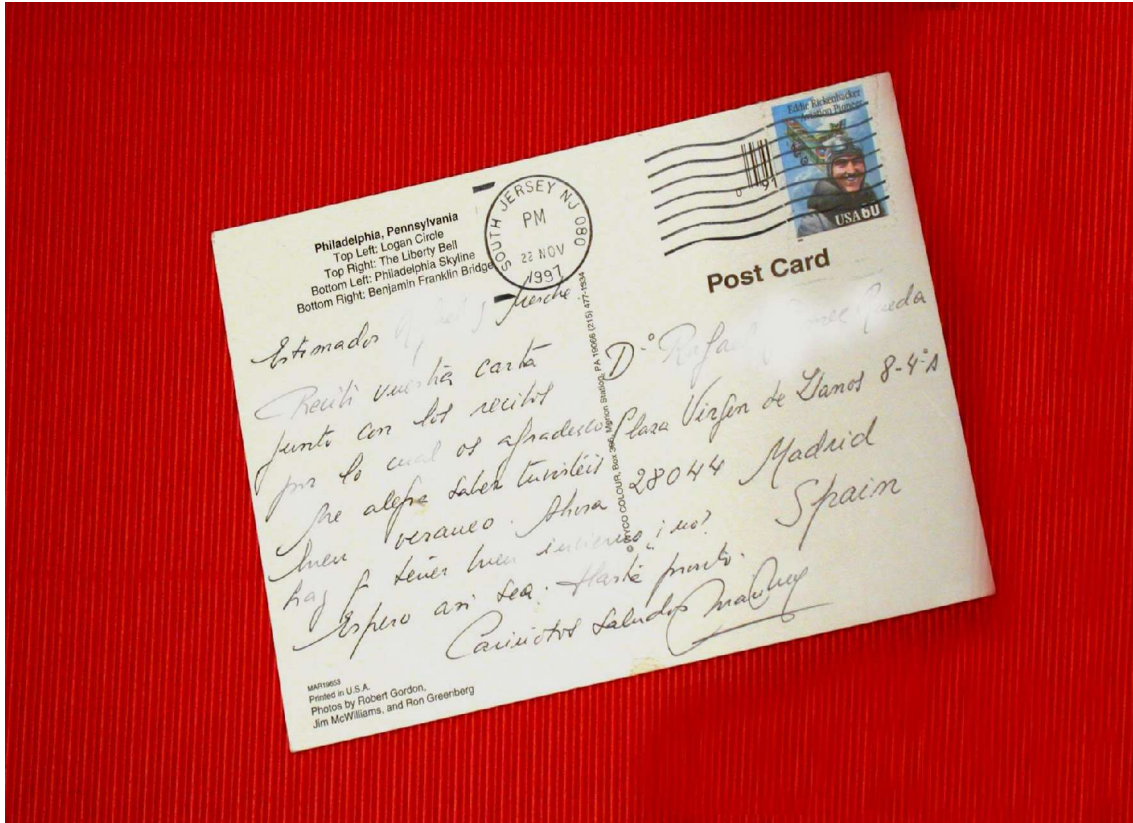 Philadelphia, Pennsylvania
Top Left: Logan Circle
Top Right: The Liberty Bell
Bottom Left: Philadelphia Skyline
Bottom Right: Benjamin Franklin Bridge
SOUTH JERSEY NJ 080
PM
22 NOV
1997
Eddie Rickenbacker
Aviation Pioneer
USA 60
Post Card
Estimados y Merche
Recibí vuestra carta
junto con los recibos
por lo cual os agradezco
Me alegra saber tuvisteis
buen veraneo. Ahora
hay q tener buen invierno ¿no?
Espero asi sea. Hasta pronto.
Cariñotos saludos
D.º Rafael Rueda
Plaza Virgen de Llanos 8-4ºA
28044 Madrid
Spain
COLOUR, Box 366, Merion Station, PA 19066 (215) 477-1534
MAR19653
Printed in U.S.A.
Photos by Robert Gordon,
Jim McWilliams, and Ron Greenberg